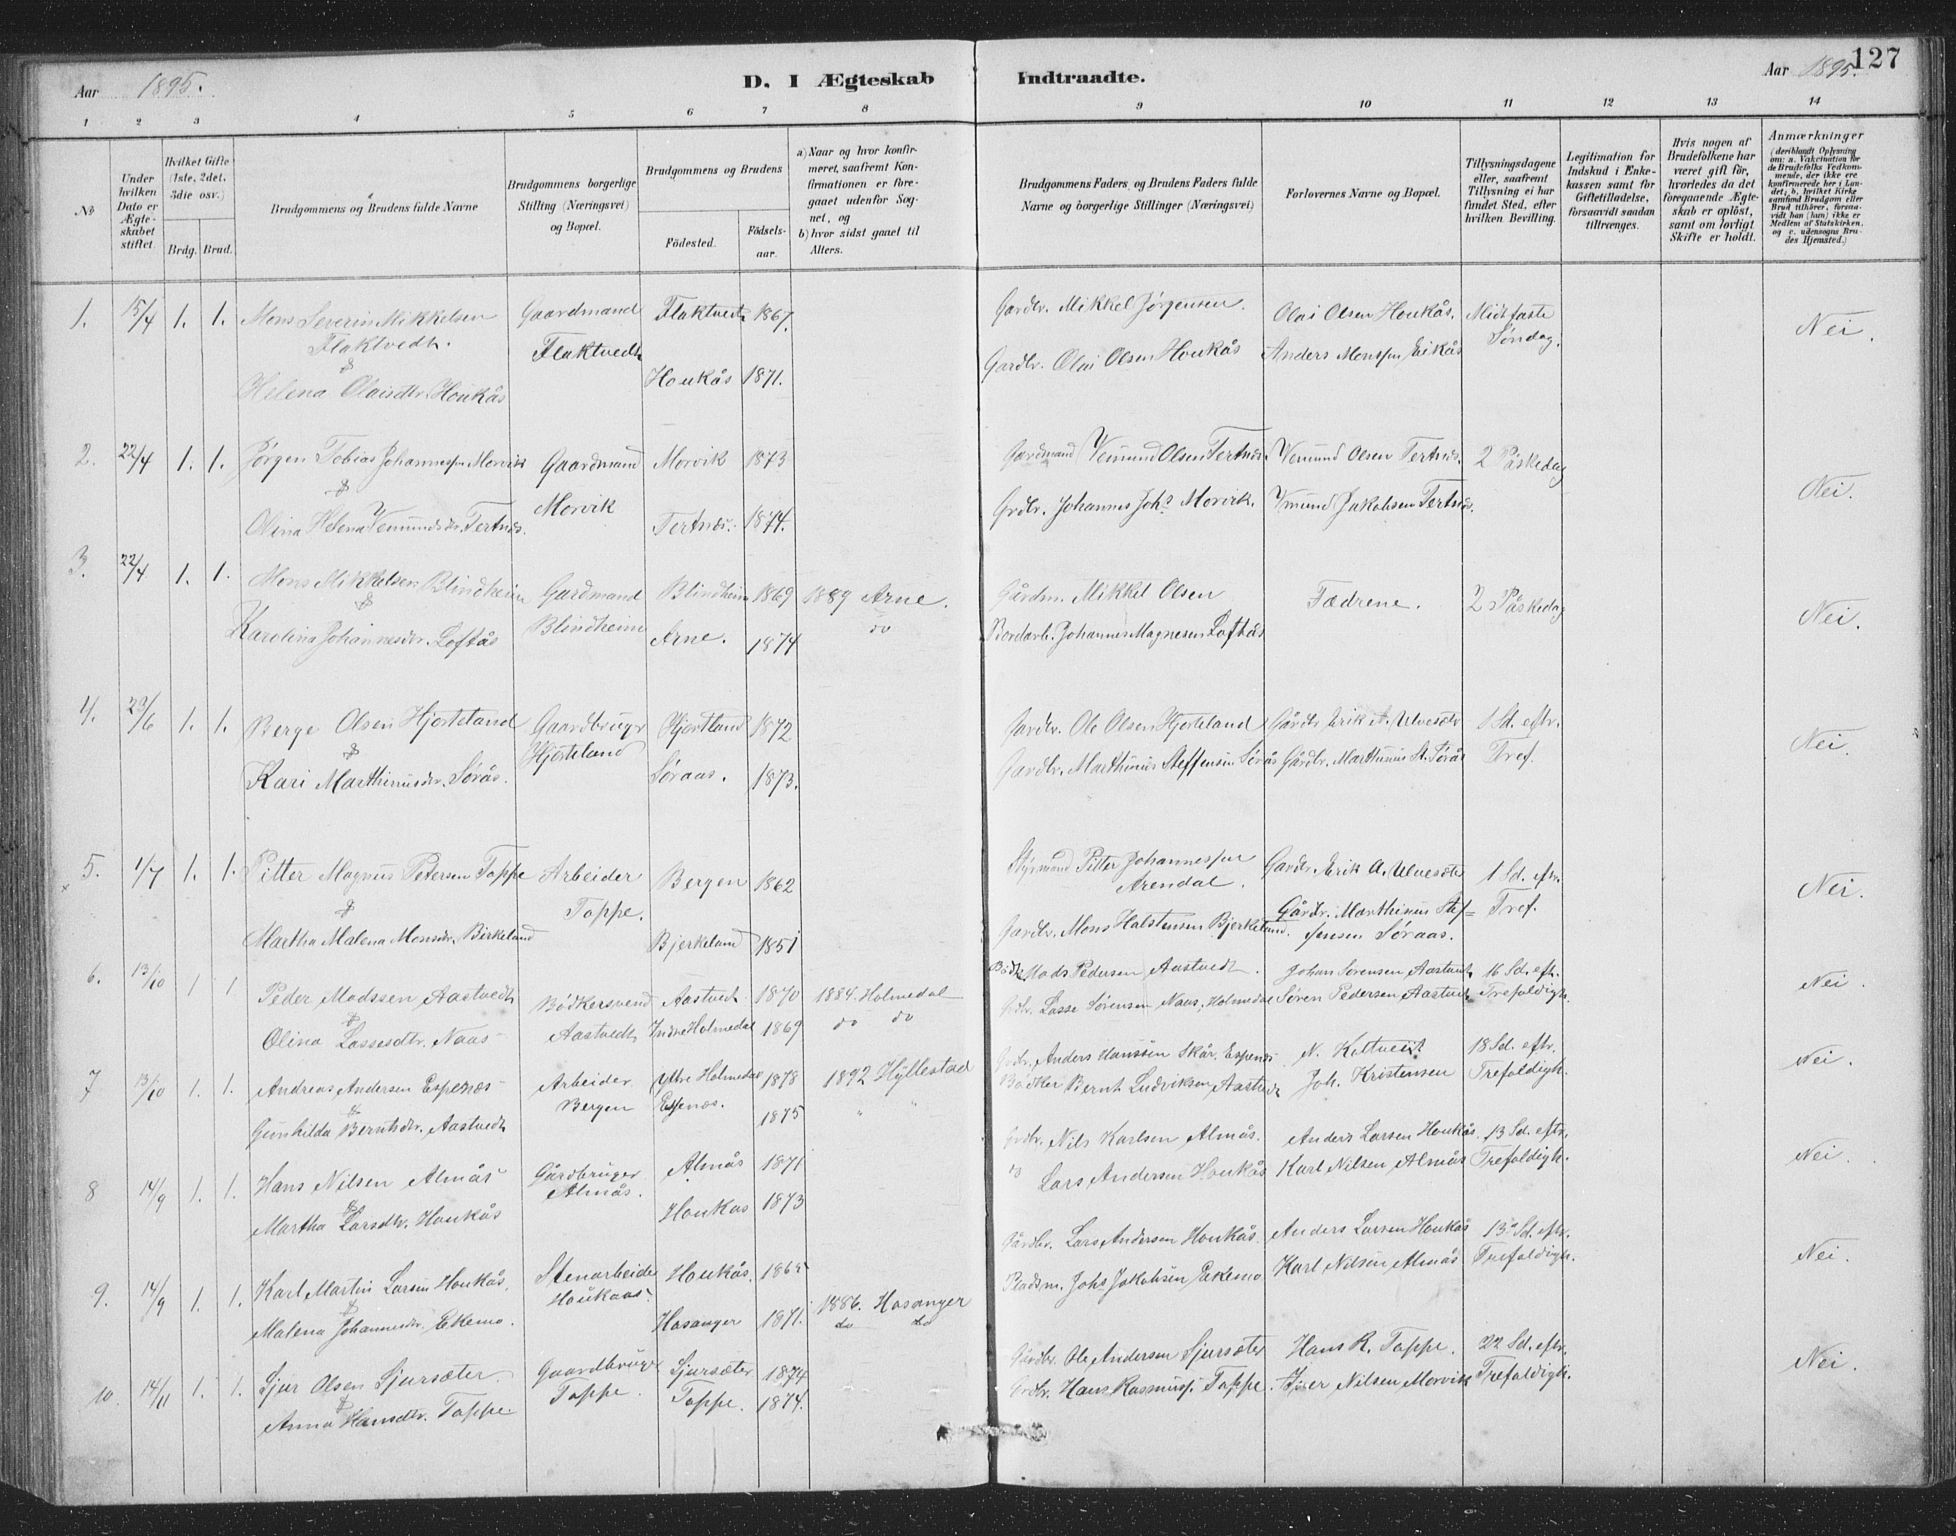 127
Aar 1895.
D. I Ægteskab
Indtraadte.
Aar 1895.
1 2 3 4 5 6 7 8 9 10 11 12 13 14
No
Under hvilken Dato er Ægteskabet stiftet.
Hvilket Gifte (1ste, 2det, 3die osv.)
Brdg. Brud.
Brudgommens og Brudens fulde Navne
Brudgommens borgerlige Stilling (Næringsvei) og Bopæl.
Brudgommens og Brudens
Födested.
Födselsaar.
a) Naar og hvor konfirmeret, saafremt Konfirmationen er foregaaet udenfor Sognet, og
b) hvor sidst gaaet til Alters.
Brudgommens Faders, og Brudens Faders fulde Navne og borgerlige Stillinger (Næringsvei)
Forlovernes Navne og Bopæl.
Tillysningsdagene eller, saafremt Tillysning ei har fundet Sted, efter hvilken Bevilling.
Legitimation for Indskud i Enkekassen samt for Giftetilladelse, forsaavidt saadan tiltrænges.
Hvis nogen af Brudefolkene har været gift för, hvorledes da det foregaaende Ægteskab er oplöst, samt om lovligt Skifte er holdt.
Anmærkninger
(deriblandt Oplysning om: a. Vakcination for de Brudefolks Vedkommende, der ikke ere konfirmerede her i Landet; b. hvilket Kirkesamfund Brudgom eller Brud tilhörer, forsaavidt han (hun) ikke er Medlem af Statskirken, og c. udensogns Brudes Hjemsted.)
1. 15/4 1. 1. Mons Severin Mikkelsen Gaardmand Flaktvedt 1867. Gardbr. Mikkel Jørgensen. Olai Olsen Houkås. Midtfaste Nei.
Flaktvedt. Flaktvedt Søndag.
&
Helena Olaisdtr. Houkås Houkås 1871. Gardbr. Olai Olsen Houkås Anders Monssen Eikås
2. 22/4 1. 1. Jørgen Tobias Johannessen Morvik Gaardmand Morvik 1873 Gardmand Vemund Olsen Tertnes. Vemund Olsen Tertnes. 2 Påskedag Nei.
&
Olina Helena Vemundsdr. Tertnes. Morvik Tertnes. 1874. Grdbr. Johannes Johs Morvik. Vmund Jakobsen Tertnes.
3. 22/4 1. 1. Mons Mikkelsen Blindheim Gardmand Blindheim 1869 1889 Arne. Gårdm. Mikkel Olsen Fædrene. 2 Påskedag Nei.
&
Karolina Johannesdr. Loftås Blindheim Arne. 1874 do Bordarb. Johannes Magnesen Loftås
4. 23/6 1. 1. Berge Olsen Hjorteland Gaardbruger Hjortland 1872 Gardbr. Ole Olsen Hjorteland Gårdbr. Erik A. Ulvesæter 1 Sd. eftr. Nei.
&
Kari Marthinusdr. Sørås. Hjorteland Søraas. 1873. Gardbr. Marthinus Steffensen Sørås Gårdbr. Marthinus St. Sørås Tref.
5. 1/7 1. 1. Pitter Magnus Petersen Toppe Arbeider Bergen 1862 Styrmand Pitter Johannessen Gardbr. Erik A. Ulvesæter 1 Sd. eftr. Nei.
& Toppe. Arendal.
Martha Malena Monsdr. Birkeland Bjerkeland 1851 Gardbr. Mons Halstensen Bjerkeland. Gårdbr. Marthinus Stef- Tref.
fensen Søraas.
6. 13/10 1 1 Peder Madssen Aastvedt Bödkersvend Aastvedt 1870 1884. Holmedal Bödk. Mads Pedersen Aastvedt. Johan Sørensen Aastvedt 16 Sd. eft. Nei.
&
Olina Lassesdtr. Naas Aastvedt Indre Holmedal 1869. do do Grdbr. Lasse Sørensen Naas, Holmedal Søren Pedersen Aastvedt Trefoldigh.
7 13/10 1. 1. Andreas Andersen Espenæs Arbeider Ytre Holmedal 1878 1892 Hyllestad Grdbr. Anders Hanssen Skår, Espenæs N. Keltvedt 18 Sd. eftr. Nei.
&
Gunhilda Berntsdr. Aastvedt Bergen Espenæs. 1875 " " Bödker Bernt Ludviksen Aastvedt Joh. Kristensen Trefoldigh.
8 14/9 1. 1. Hans Nilsen Almås Gårdbruger Almås 1871 Grdbr. Nils Karlsen Almås. Anders Larsen Houkås. 13 Sd. eftr. Nei.
&
Martha Larsdtr. Houkås Almås. Houkas 1873 " Lars Andersen Houkås Karl Nilsen Almås Trefoldigh.
9. 14/9 1. 1. Karl Martin Larsen Houkås, Stenarbeide Houkås. 1865 Gårdbr. Lars Andersen Houkås. Anders Larsen Houkås 13 Sd. eftr. Nei.
&
Malena Johannesdr. Ekemo. Houkaas. Hosanger 1871. 1886. Hosanger do do Pladsm. Johs Jakobsen Ekemo Karl Nilsen Almås Trefoldigh.
10. 14/11 1. 1. Sjur Olsen Sjursæter Gaardbruger Sjursæter 1874 Gårdbr. Ole Andersen Sjursæter Hans R. Toppe. 22 Sd. eftr. Nei.
&
Anna Hansdtr. Toppe. Toppe. Toppe. 1874. Grdbr. Hans Rasmuss. Toppe. Iver Nilsen Morvik Trefoldigh.